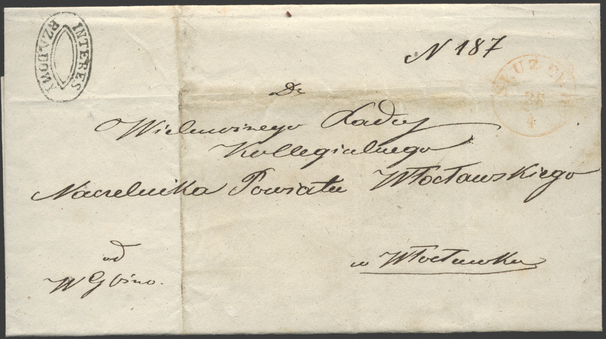 INTERES RZĄDOWY
N 187
25
4
Do
Wielmożnego Radcy
Kollegialnego
Naczelnika Powiatu Włocławskiego
od
w Włocławku